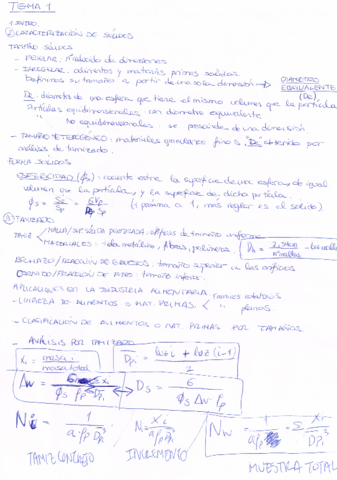 TEMA 1
1. INTRO.
② CARACTERIZACIÓN DE SÓLIDOS
TAMAÑO SÓLIDOS
- REGULAR: Medición de dimensiones
- IRREGULAR: alimentos y materias primas sólidas.
Definimos su tamaño a partir de una sola dimensión → DIÁMETRO EQUIVALENTE (De)
De: diámetro de una esfera que tiene el mismo volumen que la partícula.
Partículas equidimensionales: con diámetro equivalente
" No equidimensionales: se prescinde de una dimensión
- TAMAÑO HETEROGÉNEO: materiales granulares finos. De obtenido por
análisis de tamizado.
FORMA SÓLIDOS
ESFERICIDAD (ϕs): cociente entre la superficie de una esfera de igual
volumen que la partícula, y la superficie de dicha partícula.
ϕs = Se/Sp = 6Vp/Dp Sp (+ próxima a 1, más regular es el sólido)
③ TAMIZADO
TAMIZ MALLA/SUP. SÓLIDA PERFORADA: orificios de tamaño uniforme
MATERIALES: telas metálicas, fibras, polímeros
RECHAZO/FRACCIÓN DE GRUESOS: tamaño superior a los orificios
CERNIDO/FRACCIÓN DE FINOS: tamaño inferior.
APLICACIONES EN LA INDUSTRIA ALIMENTARIA
- LIMPIEZA DE ALIMENTOS O MAT. PRIMAS. < Tamices rotatorios
" planos
- CLASIFICACIÓN DE ALIMENTOS O MAT. PRIMAS POR TAMAÑOS.
- ANÁLISIS POR TAMIZADO
Xi = masa i / masa total
Ds = 6 / ϕs Aw ρp
Ni = 1 / a·ρp Dpi³
Ni = Xi / aρp Dpi³
Nw = 1/aρp Σ Xi/Dpi³
TAMIZ CONCRETO
INCREMENTO
MUESTRA TOTAL